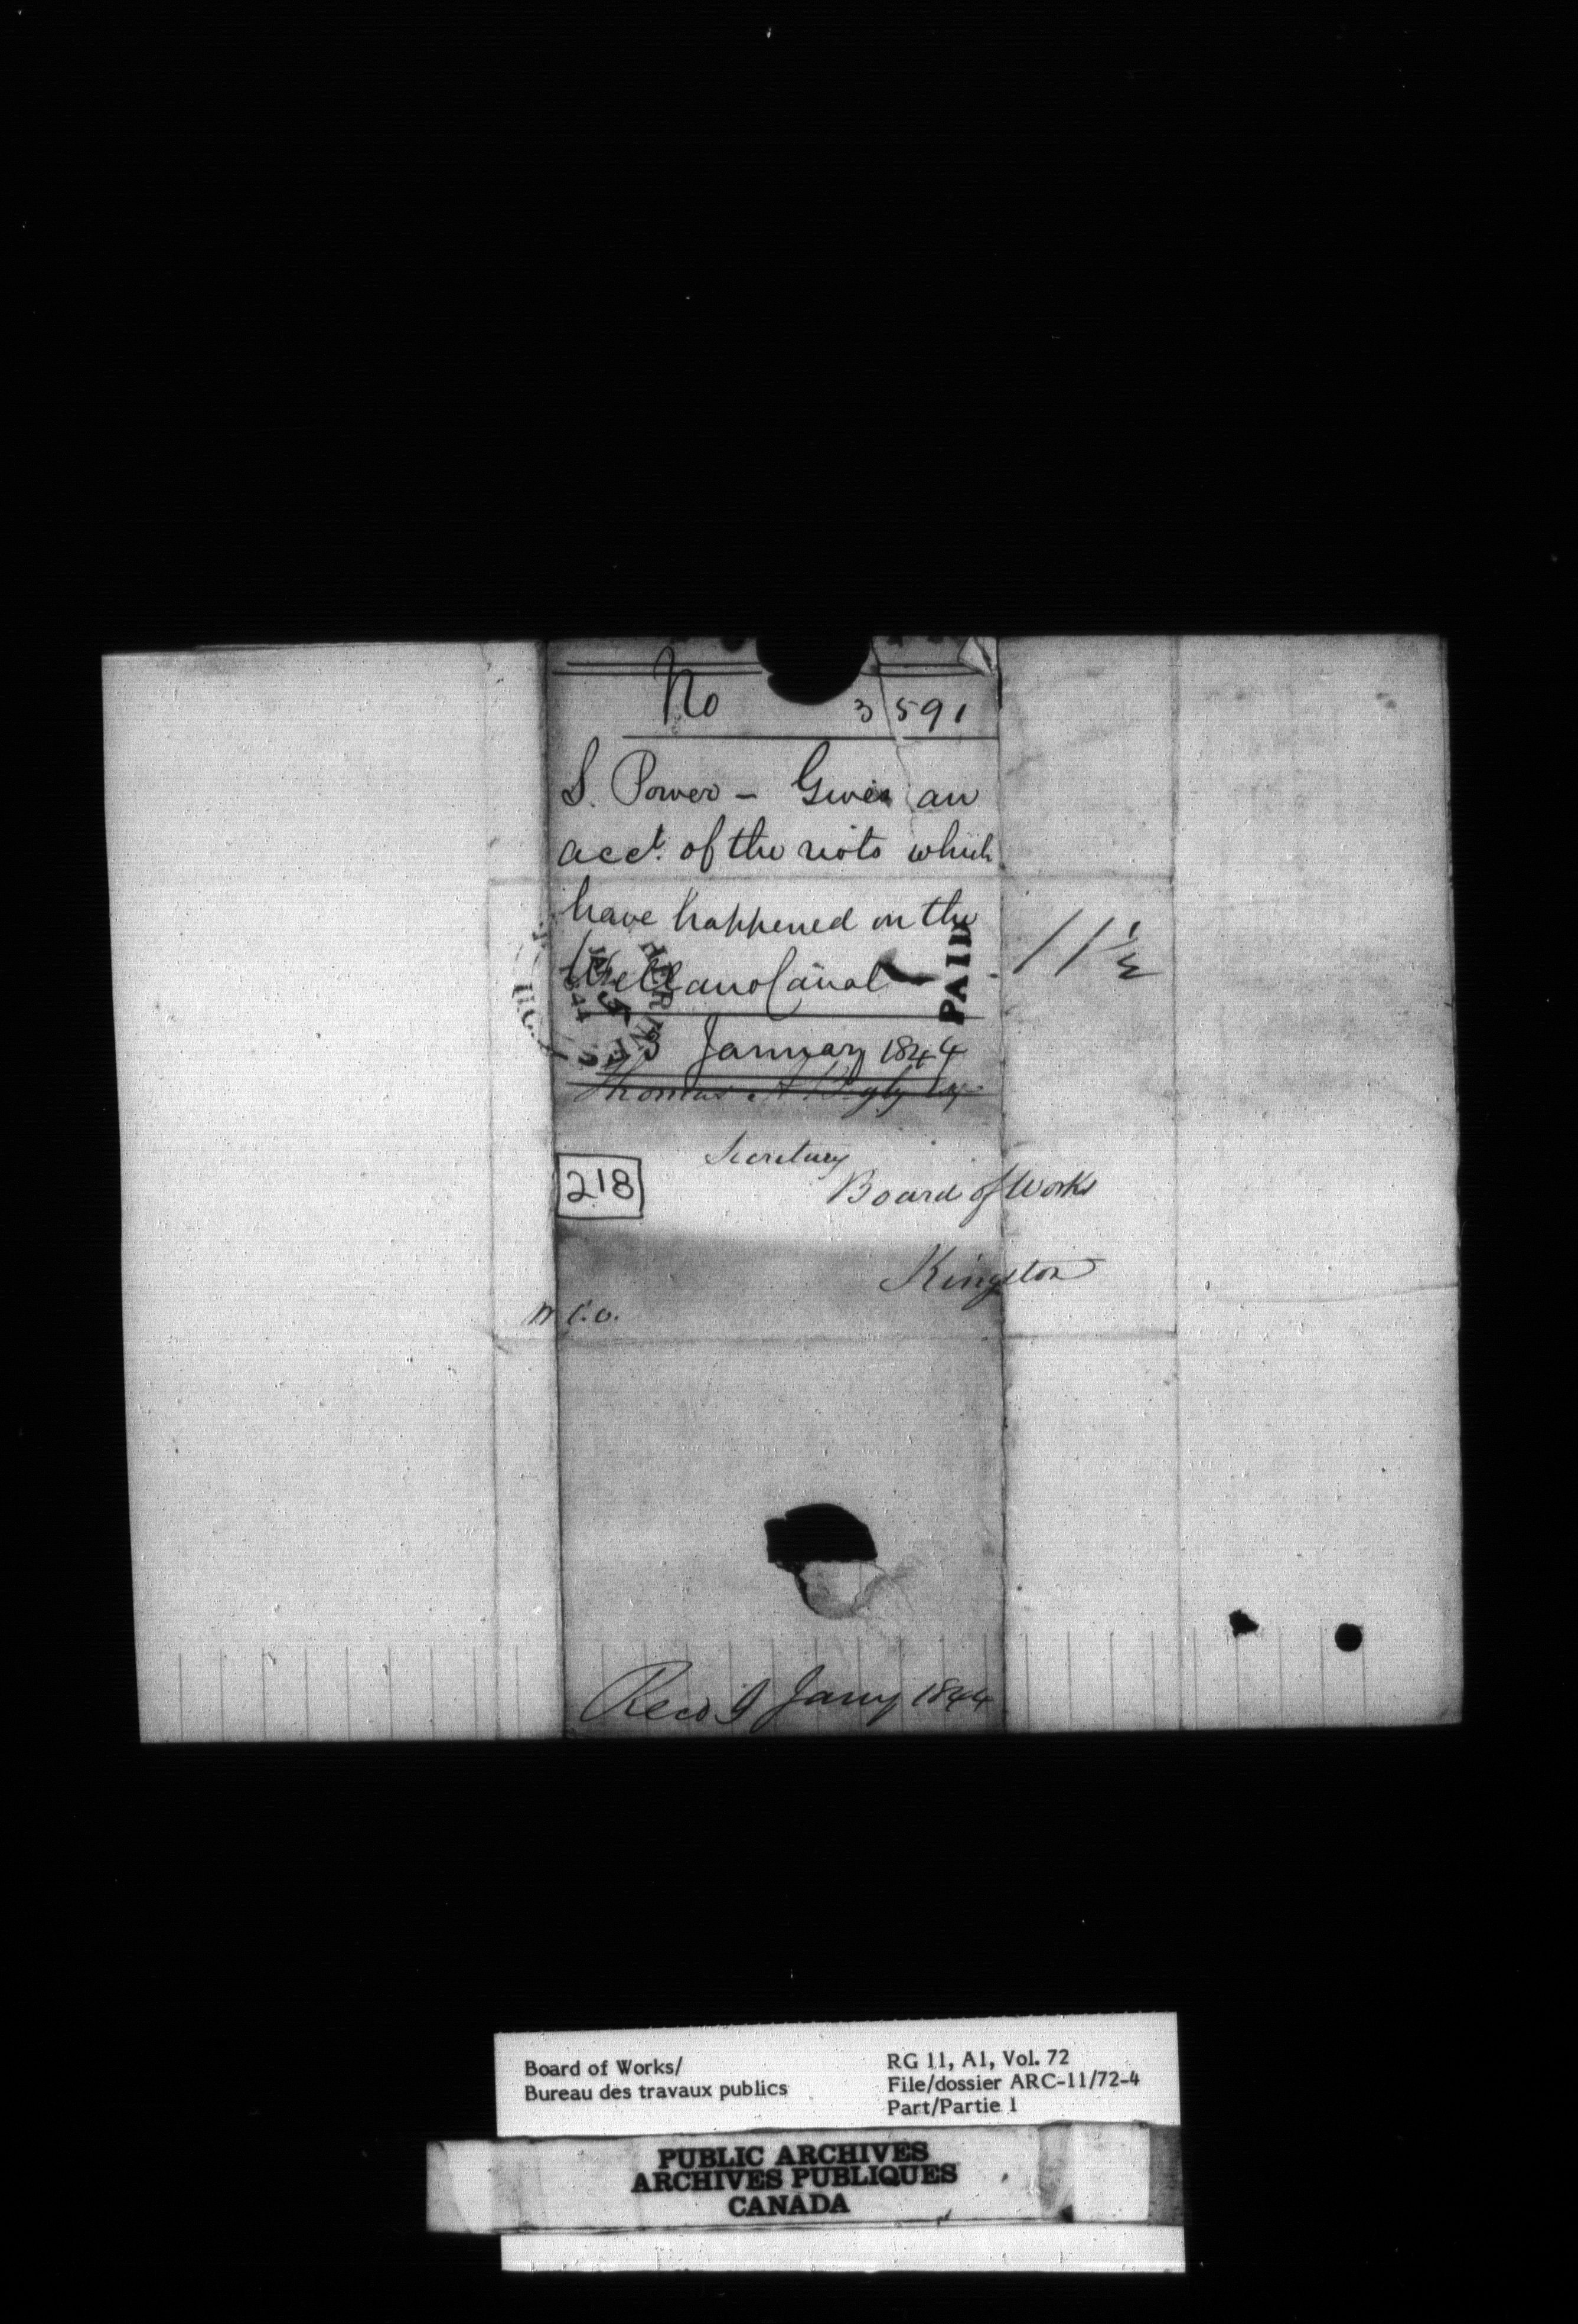 No 3591
S. Power - Gives an
acct. of the riots which
have happened on the
Welland Canal
PAID
11½
3 January 1844
Thomas A Begly Esq
Secretary
218
Board of Works
Kingston
Recd 9 Jany 1844
Board of Works/
Bureau des travaux publics
RG 11, A1, Vol. 72
File/dossier ARC-11/72-4
Part/Partie 1
PUBLIC ARCHIVES
ARCHIVES PUBLIQUES
CANADA